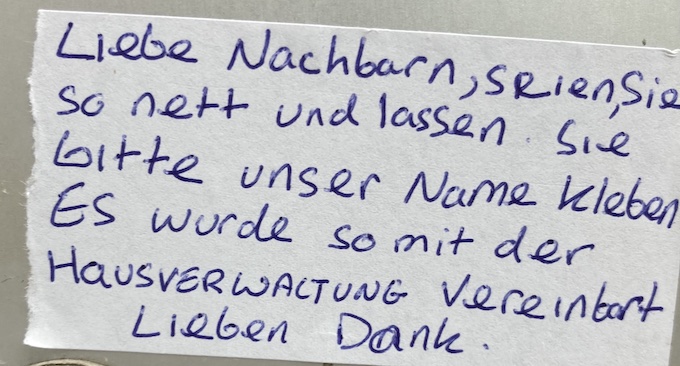 Liebe Nachbarn, seien Sie
so nett und lassen Sie
bitte unser Name kleben
Es wurde so mit der
HAUSVERWALTUNG vereinbart
Lieben Dank.